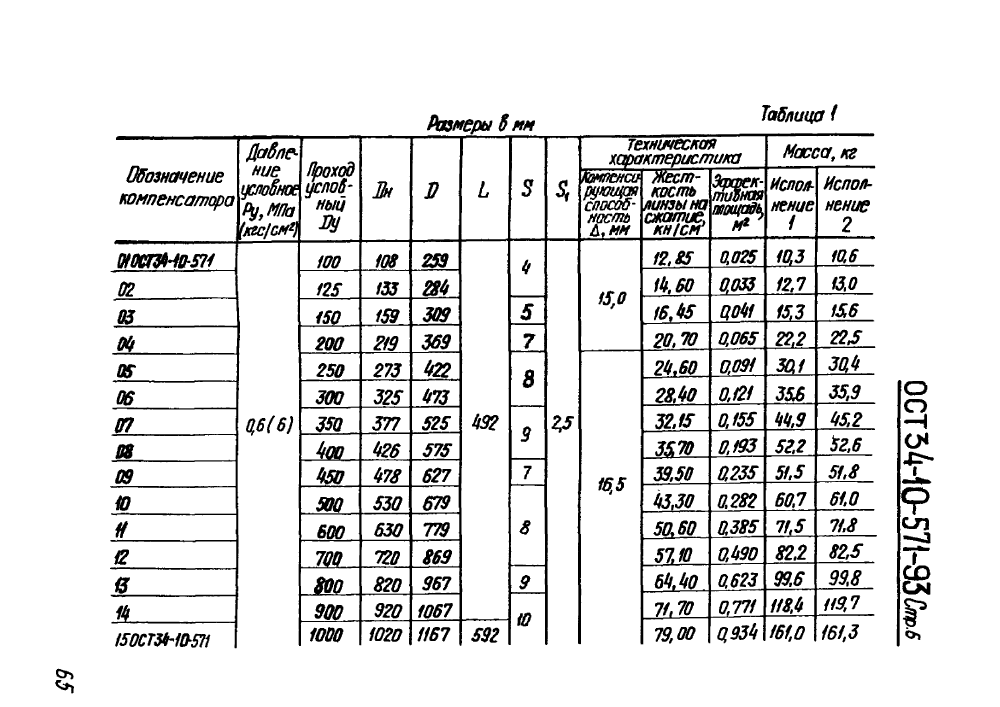 Таблица 1
Размеры в мм
Обозначение компенсатора | Давление условное Pу, МПа (кгс/см²) | Проход условный Dу | Dн | D | L | S | S₁ | Техническая характеристика | Масса, кг
Компенсирующая способность Δ, мм | Жесткость линзы на сжатие, кн/см | Эффективная площадь, м² | Исполнение 1 | Исполнение 2
01 ОСТ34-10-571 | 0,6(6) | 100 | 108 | 259 | 492 | 4 | 2,5 | 15,0 | 12,85 | 0,025 | 10,3 | 10,6
02 | 125 | 133 | 284 | 14,60 | 0,033 | 12,7 | 13,0
03 | 150 | 159 | 309 | 5 | 16,45 | 0,041 | 15,3 | 15,6
04 | 200 | 219 | 369 | 7 | 20,70 | 0,065 | 22,2 | 22,5
05 | 250 | 273 | 422 | 8 | 16,5 | 24,60 | 0,091 | 30,1 | 30,4
06 | 300 | 325 | 473 | 28,40 | 0,121 | 35,6 | 35,9
07 | 350 | 377 | 525 | 9 | 32,15 | 0,155 | 44,9 | 45,2
08 | 400 | 426 | 575 | 35,70 | 0,193 | 52,2 | 52,6
09 | 450 | 478 | 627 | 7 | 39,50 | 0,235 | 51,5 | 51,8
10 | 500 | 530 | 679 | 8 | 43,30 | 0,282 | 60,7 | 61,0
11 | 600 | 630 | 779 | 50,60 | 0,385 | 71,5 | 71,8
12 | 700 | 720 | 869 | 57,10 | 0,490 | 82,2 | 82,5
13 | 800 | 820 | 967 | 9 | 64,40 | 0,623 | 99,6 | 99,8
14 | 900 | 920 | 1067 | 10 | 71,70 | 0,771 | 118,4 | 119,7
15 ОСТ34-10-571 | 1000 | 1020 | 1167 | 592 | 79,00 | 0,934 | 161,0 | 161,3
ОСТ 34-10-571-93 Стр. 6
65